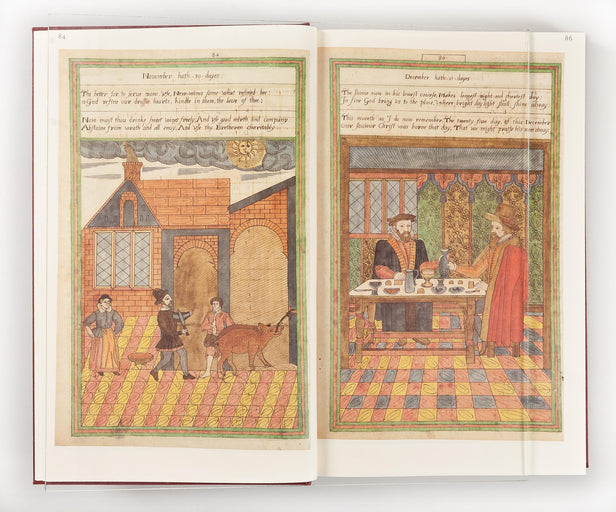 84
84
November hath ·30· dayes:
The beter for to serve mans Use, New wines some what refined bee:
O God refine our drossie hearts, kindle in them, the love of thee:
Now must thou drinke sweet wines freely, And Use good mirth and company
Abstaine from wrath and all envy, And Use thy Bretheren charitably
86
86
December hath ·31· dayes
The Sunne now in his lowest course, Makes longest night and shortest day
In fine God bring us to the place, where bright day light shall shine alway
This moneth as I do now remember, The twenty five day of this December
our Saviour Christ was borne that day, That we might praise his name alway